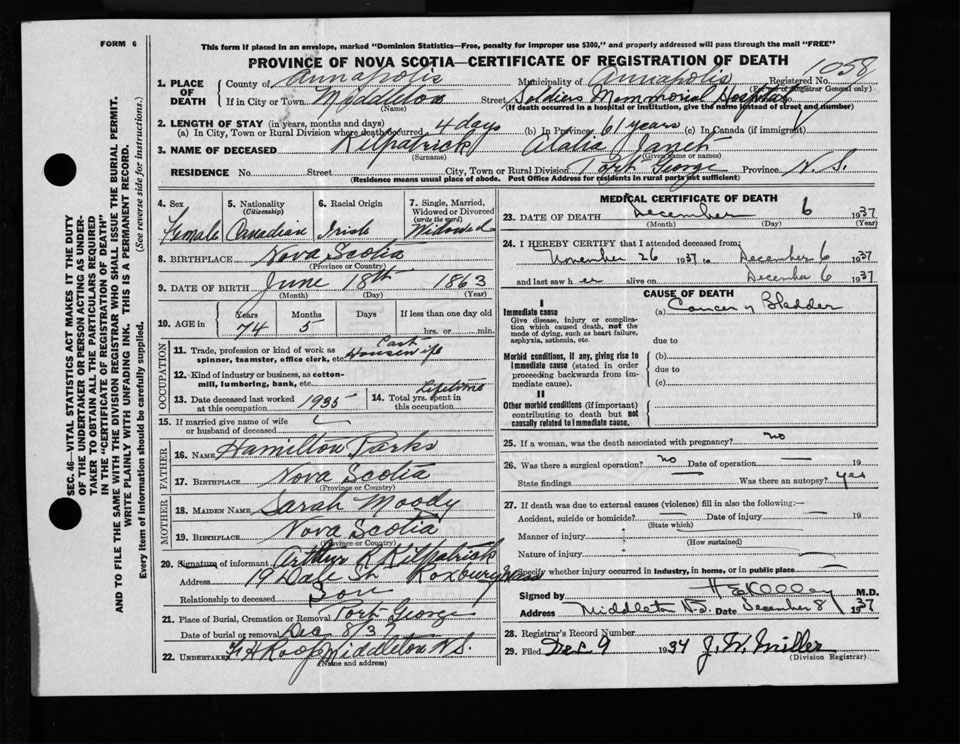 FORM 6
This form if placed in an envelope, marked "Dominion Statistics—Free, penalty for improper use $300," and properly addressed will pass through the mail "FREE"
PROVINCE OF NOVA SCOTIA—CERTIFICATE OF REGISTRATION OF DEATH
1058
1. PLACE OF DEATH County of Annapolis Municipality of Annapolis Registered No.
(For use of Registrar General only)
If in City or Town Middleton Street Soldiers Memmorial Hospital No.
(Name) (If death occurred in a hospital or institution, give the name instead of street and number)
2. LENGTH OF STAY (in years, months and days)
(a) In City, Town or Rural Division where death occurred 4 days (b) In Province 61 years (c) In Canada (if immigrant)
3. NAME OF DECEASED Kilpatrick Janet
(Surname) (Given name or names)
RESIDENCE No. Street City, Town or Rural Division Port George Province N.S.
(Residence means usual place of abode. Post Office Address for residents in rural parts not sufficient)
4. Sex Female
5. Nationality (Citizenship) Canadian
6. Racial Origin Irish
7. Single, Married, Widowed or Divorced (write the word) Widowed
8. BIRTHPLACE Nova Scotia
(Province or Country)
9. DATE OF BIRTH June 18th 1863
(Month) (Day) (Year)
10. AGE in Years Months Days If less than one day old
74 5 hrs. or min.
OCCUPATION
11. Trade, profession or kind of work as spinner, teamster, office clerk, etc. Housewife
12. Kind of industry or business, as cotton-mill, lumbering, bank, etc.
13. Date deceased last worked at this occupation 1935
14. Total yrs. spent in this occupation Lifetime
15. If married give name of wife or husband of deceased
FATHER
16. NAME Hamilton Parks
17. BIRTHPLACE Nova Scotia
(Province or Country)
MOTHER
18. MAIDEN NAME Sarah Moody
19. BIRTHPLACE Nova Scotia
(Province or Country)
20. Signature of informant Arthur R Kilpatrick
Address 19 Dale St Roxbury Mass
Relationship to deceased Son
21. Place of Burial, Cremation or Removal Port George
Date of burial or removal Dec 8/37
22. UNDERTAKER Roop Middleton N.S.
(Name and address)
MEDICAL CERTIFICATE OF DEATH
23. DATE OF DEATH December 6 1937
(Month) (Day) (Year)
24. I HEREBY CERTIFY that I attended deceased from:
November 26 1937 to December 6 1937
and last saw her alive on December 6 1937
CAUSE OF DEATH
I
Immediate cause (a) Cancer of Bladder
Give disease, injury or complication which caused death, not the mode of dying, such as heart failure, asphyxia, asthenia, etc.
due to
Morbid conditions, if any, giving rise to immediate cause (stated in order proceeding backwards from immediate cause).
(b)
due to
(c)
II
Other morbid conditions (if important) contributing to death but not causally related to immediate cause.
25. If a woman, was the death associated with pregnancy? no
26. Was there a surgical operation? no Date of operation — 19
State findings — Was there an autopsy? yes
27. If death was due to external causes (violence) fill in also the following:—
Accident, suicide or homicide? Date of injury — 19
(State which)
Manner of injury
(How sustained)
Nature of injury
Specify whether injury occurred in industry, in home, or in public place
Signed by M.D.
Address Middleton N.S. Date December 8 1937
28. Registrar's Record Number
29. Filed Dec 9 1937 J. W. Miller
(Division Registrar)
SEC. 46—VITAL STATISTICS ACT MAKES IT THE DUTY
OF THE UNDERTAKER OR PERSON ACTING AS UNDER-
TAKER TO OBTAIN ALL THE PARTICULARS REQUIRED
IN THE "CERTIFICATE OF REGISTRATION OF DEATH"
AND TO FILE THE SAME WITH THE DIVISION REGISTRAR WHO SHALL ISSUE THE BURIAL PERMIT.
WRITE PLAINLY WITH UNFADING INK. THIS IS A PERMANENT RECORD.
Every item of information should be carefully supplied. (See reverse side for instructions.)